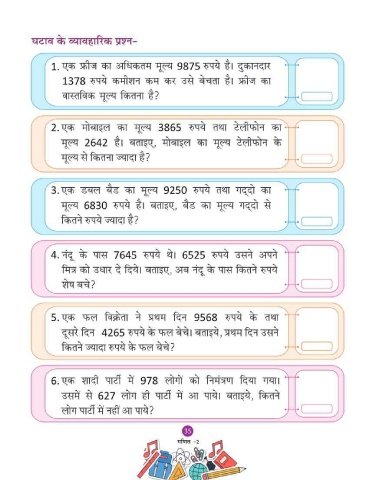 घटाव के व्यावहारिक प्रश्न-
1. एक फ्रीज का अधिकतम मूल्य 9875 रुपये है। दुकानदार
1378 रुपये कमीशन कम कर उसे बेचता है। फ्रीज का
वास्तविक मूल्य कितना है?
2. एक मोबाइल का मूल्य 3865 रुपये तथा टेलीफोन का
मूल्य 2642 है। बताइए, मोबाइल का मूल्य टेलीफोन के
मूल्य से कितना ज्यादा है?
3. एक डबल बैड का मूल्य 9250 रुपये तथा गद्दो का
मूल्य 6830 रुपये है। बताइए, बैड का मूल्य गद्दो से
कितने रुपये ज्यादा है?
4. नंदू के पास 7645 रुपये थे। 6525 रुपये उसने अपने
मित्र को उधार दे दिये। बताइए, अब नंदू के पास कितने रुपये
शेष बचे?
5. एक फल विक्रेता ने प्रथम दिन 9568 रुपये के तथा
दूसरे दिन 4265 रुपये के फल बेचे। बताइये, प्रथम दिन उसने
कितने ज्यादा रुपये के फल बेचे?
6. एक शादी पार्टी में 978 लोगो को निमंत्रण दिया गया।
उसमें से 627 लोग ही पार्टी में आ पाये। बताइये, कितने
लोग पार्टी में नहीं आ पाये?
35
गणित -2